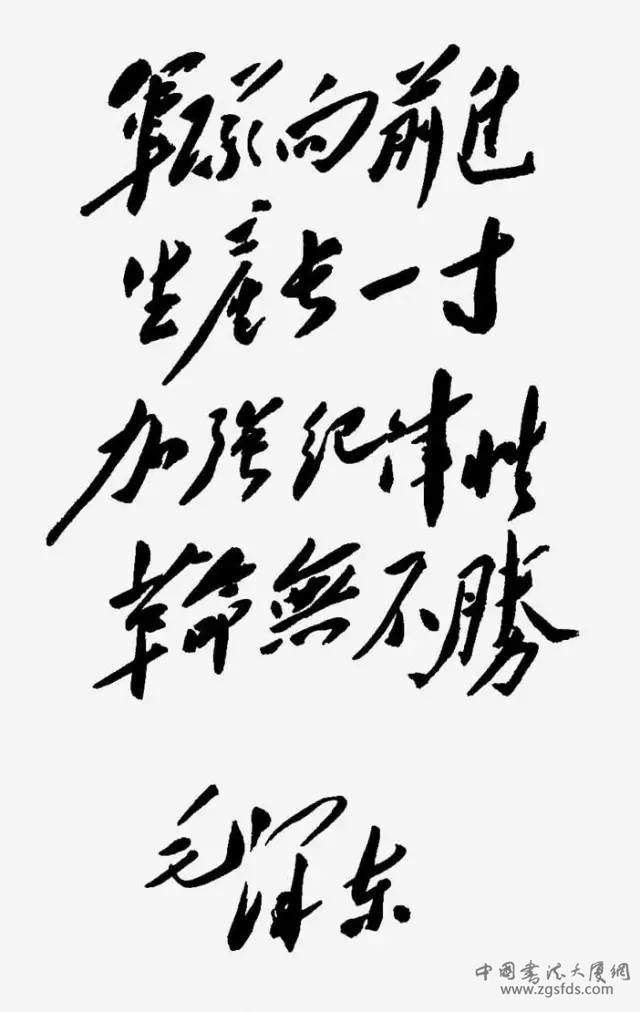 軍隊向前進
生產長一寸
加強紀律性
革命無不勝
毛泽东
中国書法大厦網
www.zgsfds.com